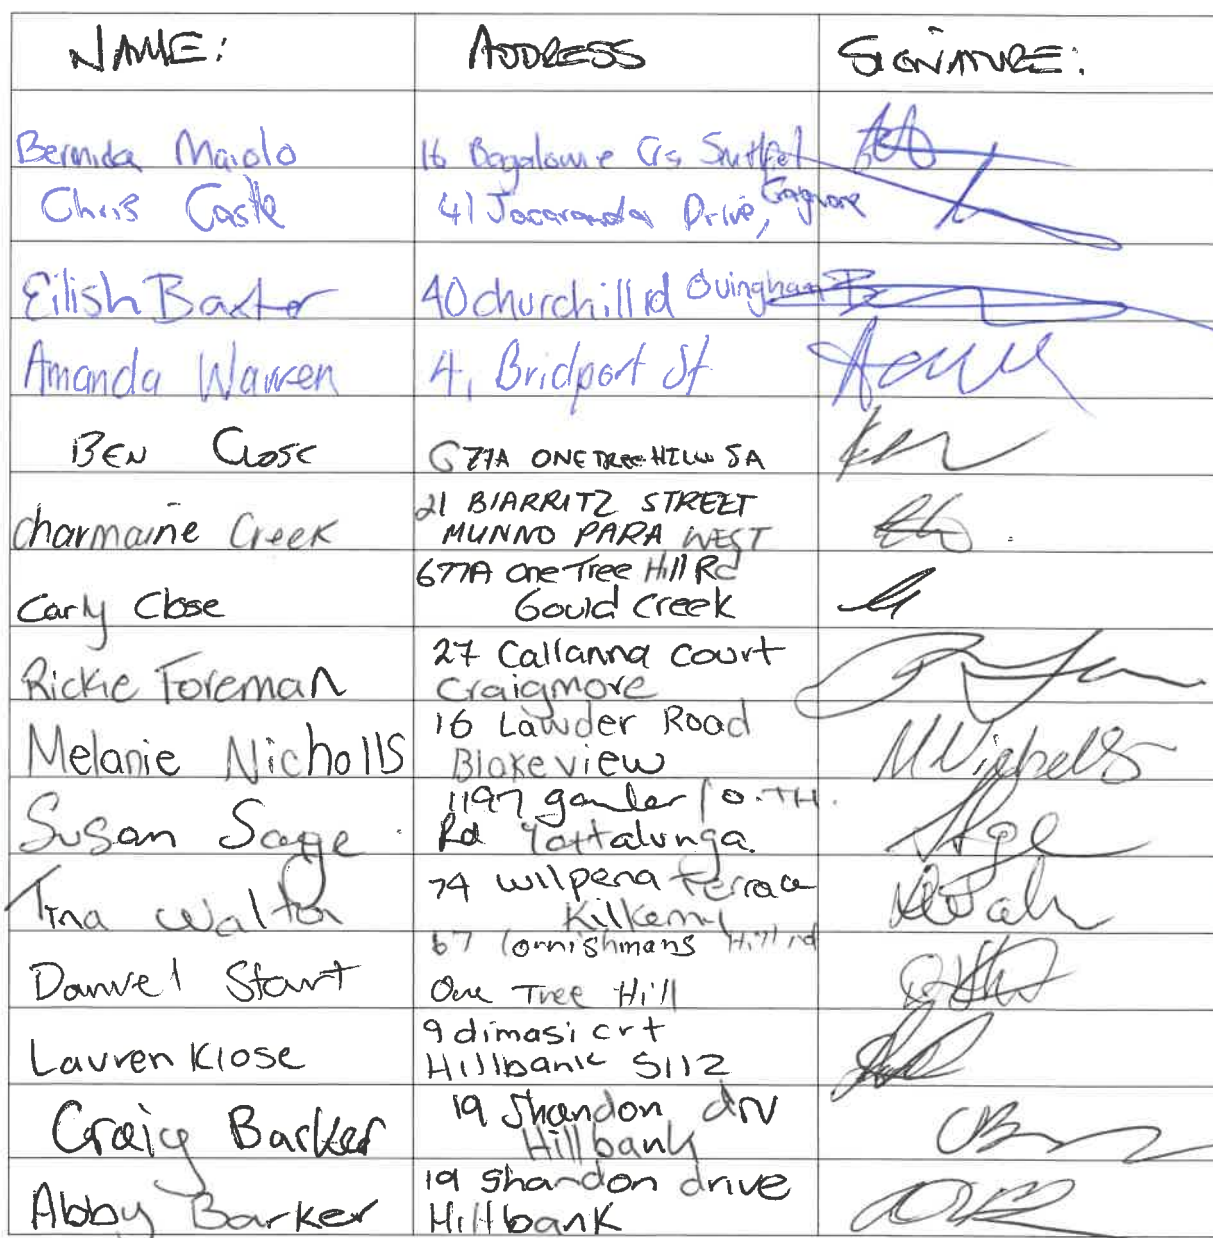 NAME: ADDRESS SIGNATURE:
Bernida Maiolo 16 Crs
Chris Castle 41 Jacaranda Drive, Craigmore
Eilish Baxter 40 churchill rd Ovingham
Amanda Warren 4, Bridport St
BEN CLOSE 677A ONE TREE HILL SA
charmaine Creek 21 BIARRITZ STREET
MUNNO PARA WEST
Carly Close 677A One Tree Hill Rd
Gould Creek
Rickie Foreman 27 Callanna court
Craigmore
Melanie Nicholls 16 Lawder Road
Blakeview M Nicholls
Susan Sage 1197 gawler
Rd Yattalunga.
Tina Walton 74 wilpena terrace
Kilkenny
Daniel Start 67 Cornishmans Hill rd
One Tree Hill
Lauren Klose 9 dimasi crt
Hillbank 5112
Craig Barker 19 Shandon drv
Hillbank
Abby Barker 19 shandon drive
Hillbank